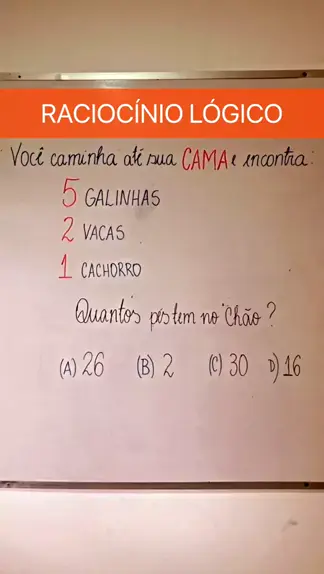 RACIOCÍNIO LÓGICO
Você caminha até sua CAMA e encontra:
5 GALINHAS
2 VACAS
1 CACHORRO
Quantos pés tem no chão?
(A) 26 (B) 2 (C) 30 D) 16